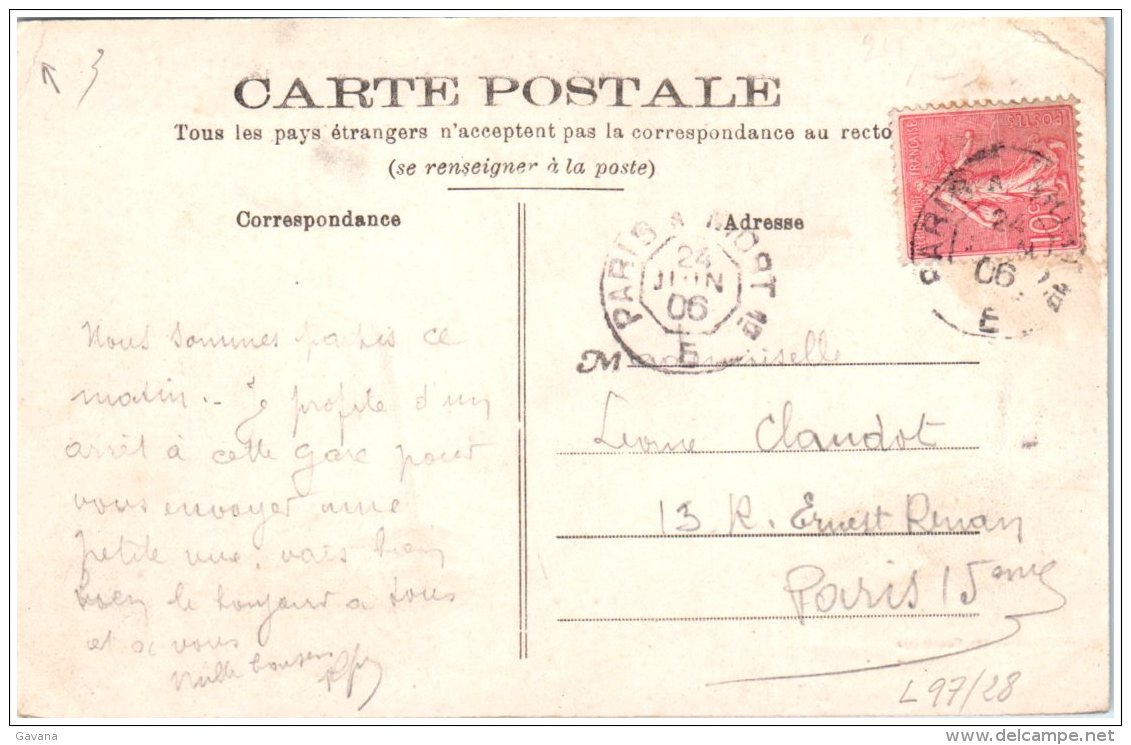 CARTE POSTALE
Tous les pays étrangers n'acceptent pas la correspondance au recto
(se renseigner à la poste)
Correspondance
Nous sommes partis ce
matin.. Je profite d'un
arrêt à cette gare pour
vous envoyer une
petite vue. vais bien
bien le bonjour a tous
et a vous
Mille baisers
Adresse
PARIS A MORT
24
JUIN
06
E
Mademoiselle
Leonie Claudot
13 R. Ernest Renan
Paris 15eme
L97/28
POSTES
FRANÇAISE
10
PARIS A
24
06
E
Gavana
delcampe.net